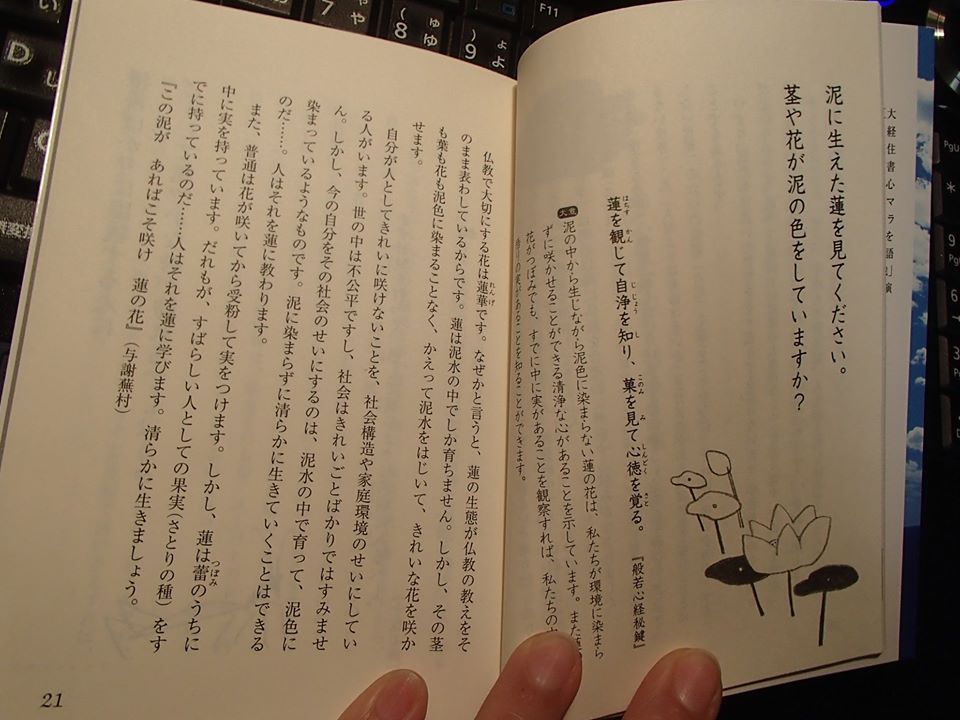 泥に生えた蓮を見てください。
茎や花が泥の色をしていますか？
蓮を観じて自浄を知り、菓を見て心徳を覚る。
はちす かん じじょう し このみ み しんどく さと
『般若心経秘鍵』
大意 泥の中から生じながら泥色に染まらない蓮の花は、私たちが環境に染まら
ずに咲かせることができる清浄な心があることを示しています。また
花がつぼみでも、すでに中に実があることを観察すれば、私たちの
の実があることを知ることができます。
仏教で大切にする花は蓮華です。なぜかと言うと、蓮の生態が仏教の教えをそ
れんげ
のまま表わしているからです。蓮は泥水の中でしか育ちません。しかし、その茎
も葉も花も泥色に染まることなく、かえって泥水をはじいて、きれいな花を咲か
せます。
自分が人としてきれいに咲けないことを、社会構造や家庭環境のせいにしてい
る人がいます。世の中は不公平ですし、社会はきれいごとばかりではすみませ
ん。しかし、今の自分をその社会のせいにするのは、泥水の中で育って、泥色に
染まっているようなものです。泥に染まらずに清らかに生きていくことはできる
のだ……。人はそれを蓮に教わります。
また、普通は花が咲いてから受粉して実をつけます。しかし、蓮は蕾のうちに
つぼみ
中に実を持っています。だれもが、すばらしい人としての果実（さとりの種）をす
でに持っているのだ……人はそれを蓮に学びます。清らかに生きましょう。
『この泥が　あればこそ咲け　蓮の花』（与謝蕪村）
21
F11